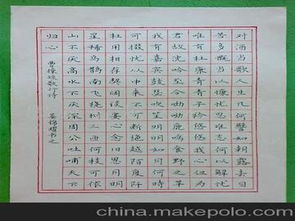 对酒当歌人生几何譬如朝露去日
苦多慨当以慷忧思难忘何以解忧
唯有杜康青青子衿悠悠我心但为
君故沉吟至今呦呦鹿鸣食野之苹
我有嘉宾鼓瑟吹笙明明如月何时
可掇忧从中来不可断绝越陌度阡
枉用相存契阔谈宴心念旧恩月明
星稀乌鹊南飞绕树三匝何枝可依
山不厌高海不厌深周公吐哺天下
归心
曹操短歌行诗
书之
china.makepolo.com